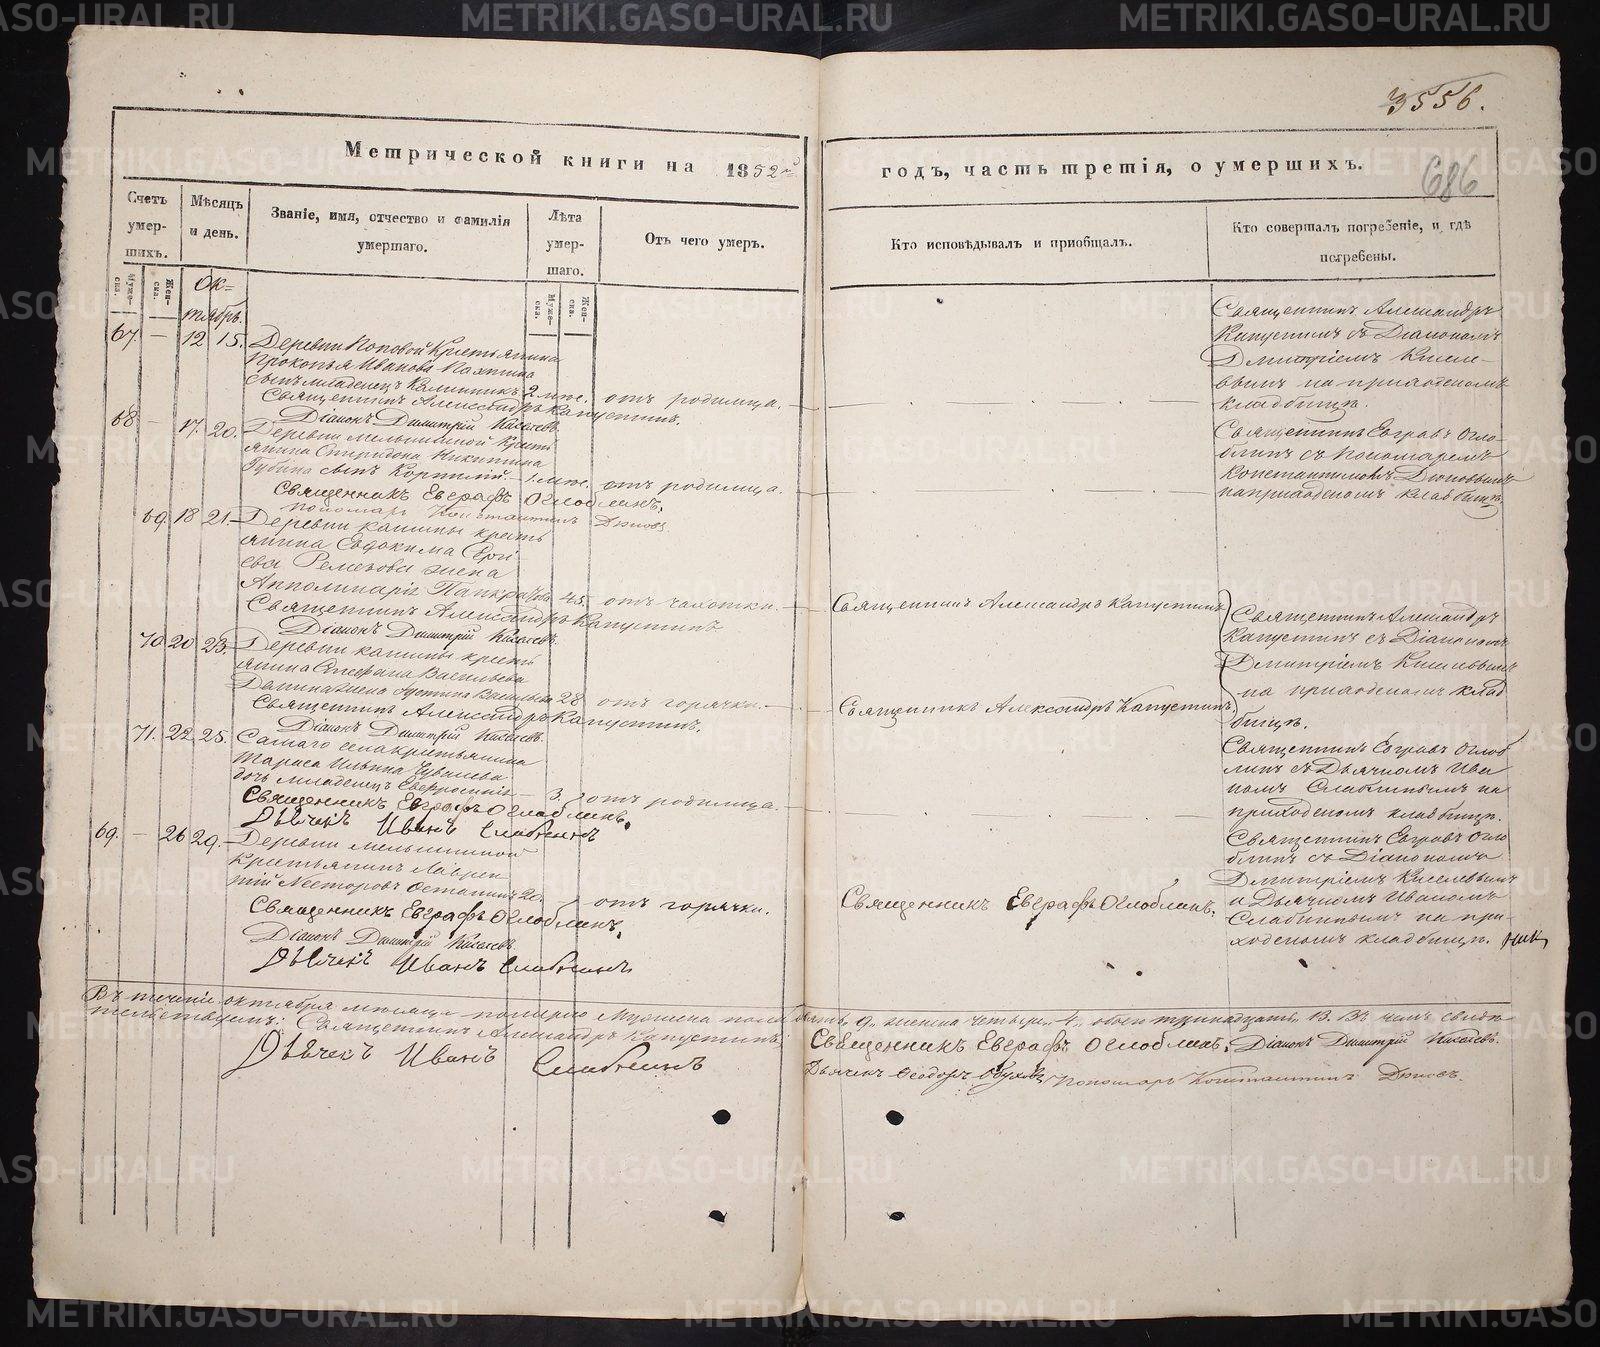 3556.
686
Метрической книги на 1852й
годъ, часть третія, о умершихъ.
Счетъ умер-шихъ.
Мѣсяцъ и день.
Званіе, имя, отчество и фамилія умершаго.
Лѣта умер-шаго.
Отъ чего умеръ.
Кто исповѣдывалъ и пріобщалъ.
Кто совершалъ погребеніе, и гдѣ погребены.
Муже-ска.
Жен-ска.
Муже-ска.
Жен-ска.
Ок-
тябрь.
67. — 12 15. Деревни Поповой Крестьянина
Прокопья Иванова
сынъ младенецъ Калинникъ 2 мѣс. отъ родимца.
Священникъ Александръ Капустинъ.
Діаконъ Димитрій Киселевъ.
Священникъ Александръ
Капустинъ съ Діакономъ
Дмитріемъ Кисele-
вымъ на приходскомъ
кладбищѣ.
68 — 17. 20. Деревни Мельниковой Кресть
янина Спиридона Никитина
Губина сынъ 1 мѣс. отъ родимца.
Священникъ Евграфъ Оглоблинъ.
пономарь Константинъ
Священникъ Евграфъ Огло-
блинъ съ Пономаремъ
Константиномъ
на приходскомъ кладбищѣ.
69. 18 21. Деревни кресть
янина Евдокима Серги
ева Ремезова жена
45. отъ чахотки.
Священникъ Александръ Капустинъ
Діаконъ Димитрій Киселевъ.
Священникъ Александръ Капустинъ
Священникъ Александръ
Капустинъ съ Діакономъ
Дмитріемъ Киселевымъ
на приходскомъ клад
бищѣ.
70. 20 23. Деревни кресть
янина Стефана Васильева
жена Васильева 28 отъ горячки.
Священникъ Александръ Капустинъ.
Діаконъ Димитрій Киселевъ.
Священникъ Александръ Капустинъ.
71. 22 25. Самаго села крестьянина
Ильина
дочь младенецъ 3. отъ родимца.
Священникъ Евграфъ Оглоблинъ.
Дьячекъ Иванъ Слабнинъ
Священникъ Евграфъ Оглоб
линъ съ Дьячкомъ Ива
номъ Слабнинымъ на
приходскомъ кладбищѣ.
69. — 26 29. Деревни Мельниковой
Крестьянинъ Лаврен
тій Несторовъ Останинъ 20. отъ горячки.
Священникъ Евграфъ Оглоблинъ.
Діаконъ Димитрій Киселевъ.
Дьячекъ Иванъ Слабнинъ
Священникъ Евграфъ Оглоблинъ.
Священникъ Евграфъ Огло
блинъ съ Діакономъ
Дмитріемъ Киселевымъ
и Дьячкомъ Иваномъ
Слабнинымъ на при-
ходскомъ кладбищѣ.
Въ теченіе октября мѣсяца померло Мужеска пола девять 9, женска четыре 4, обоего тринадцать 13. Въ чемъ свидѣ
тельствуемъ: Священникъ Александръ Капустинъ
Священникъ Евграфъ Оглоблинъ. Діаконъ Димитрій Киселевъ.
Дьячекъ Иванъ Слабнинъ
Дьячекъ Ѳеодоръ Обуховъ пономарь Константинъ
METRIKI.GASO-URAL.RU